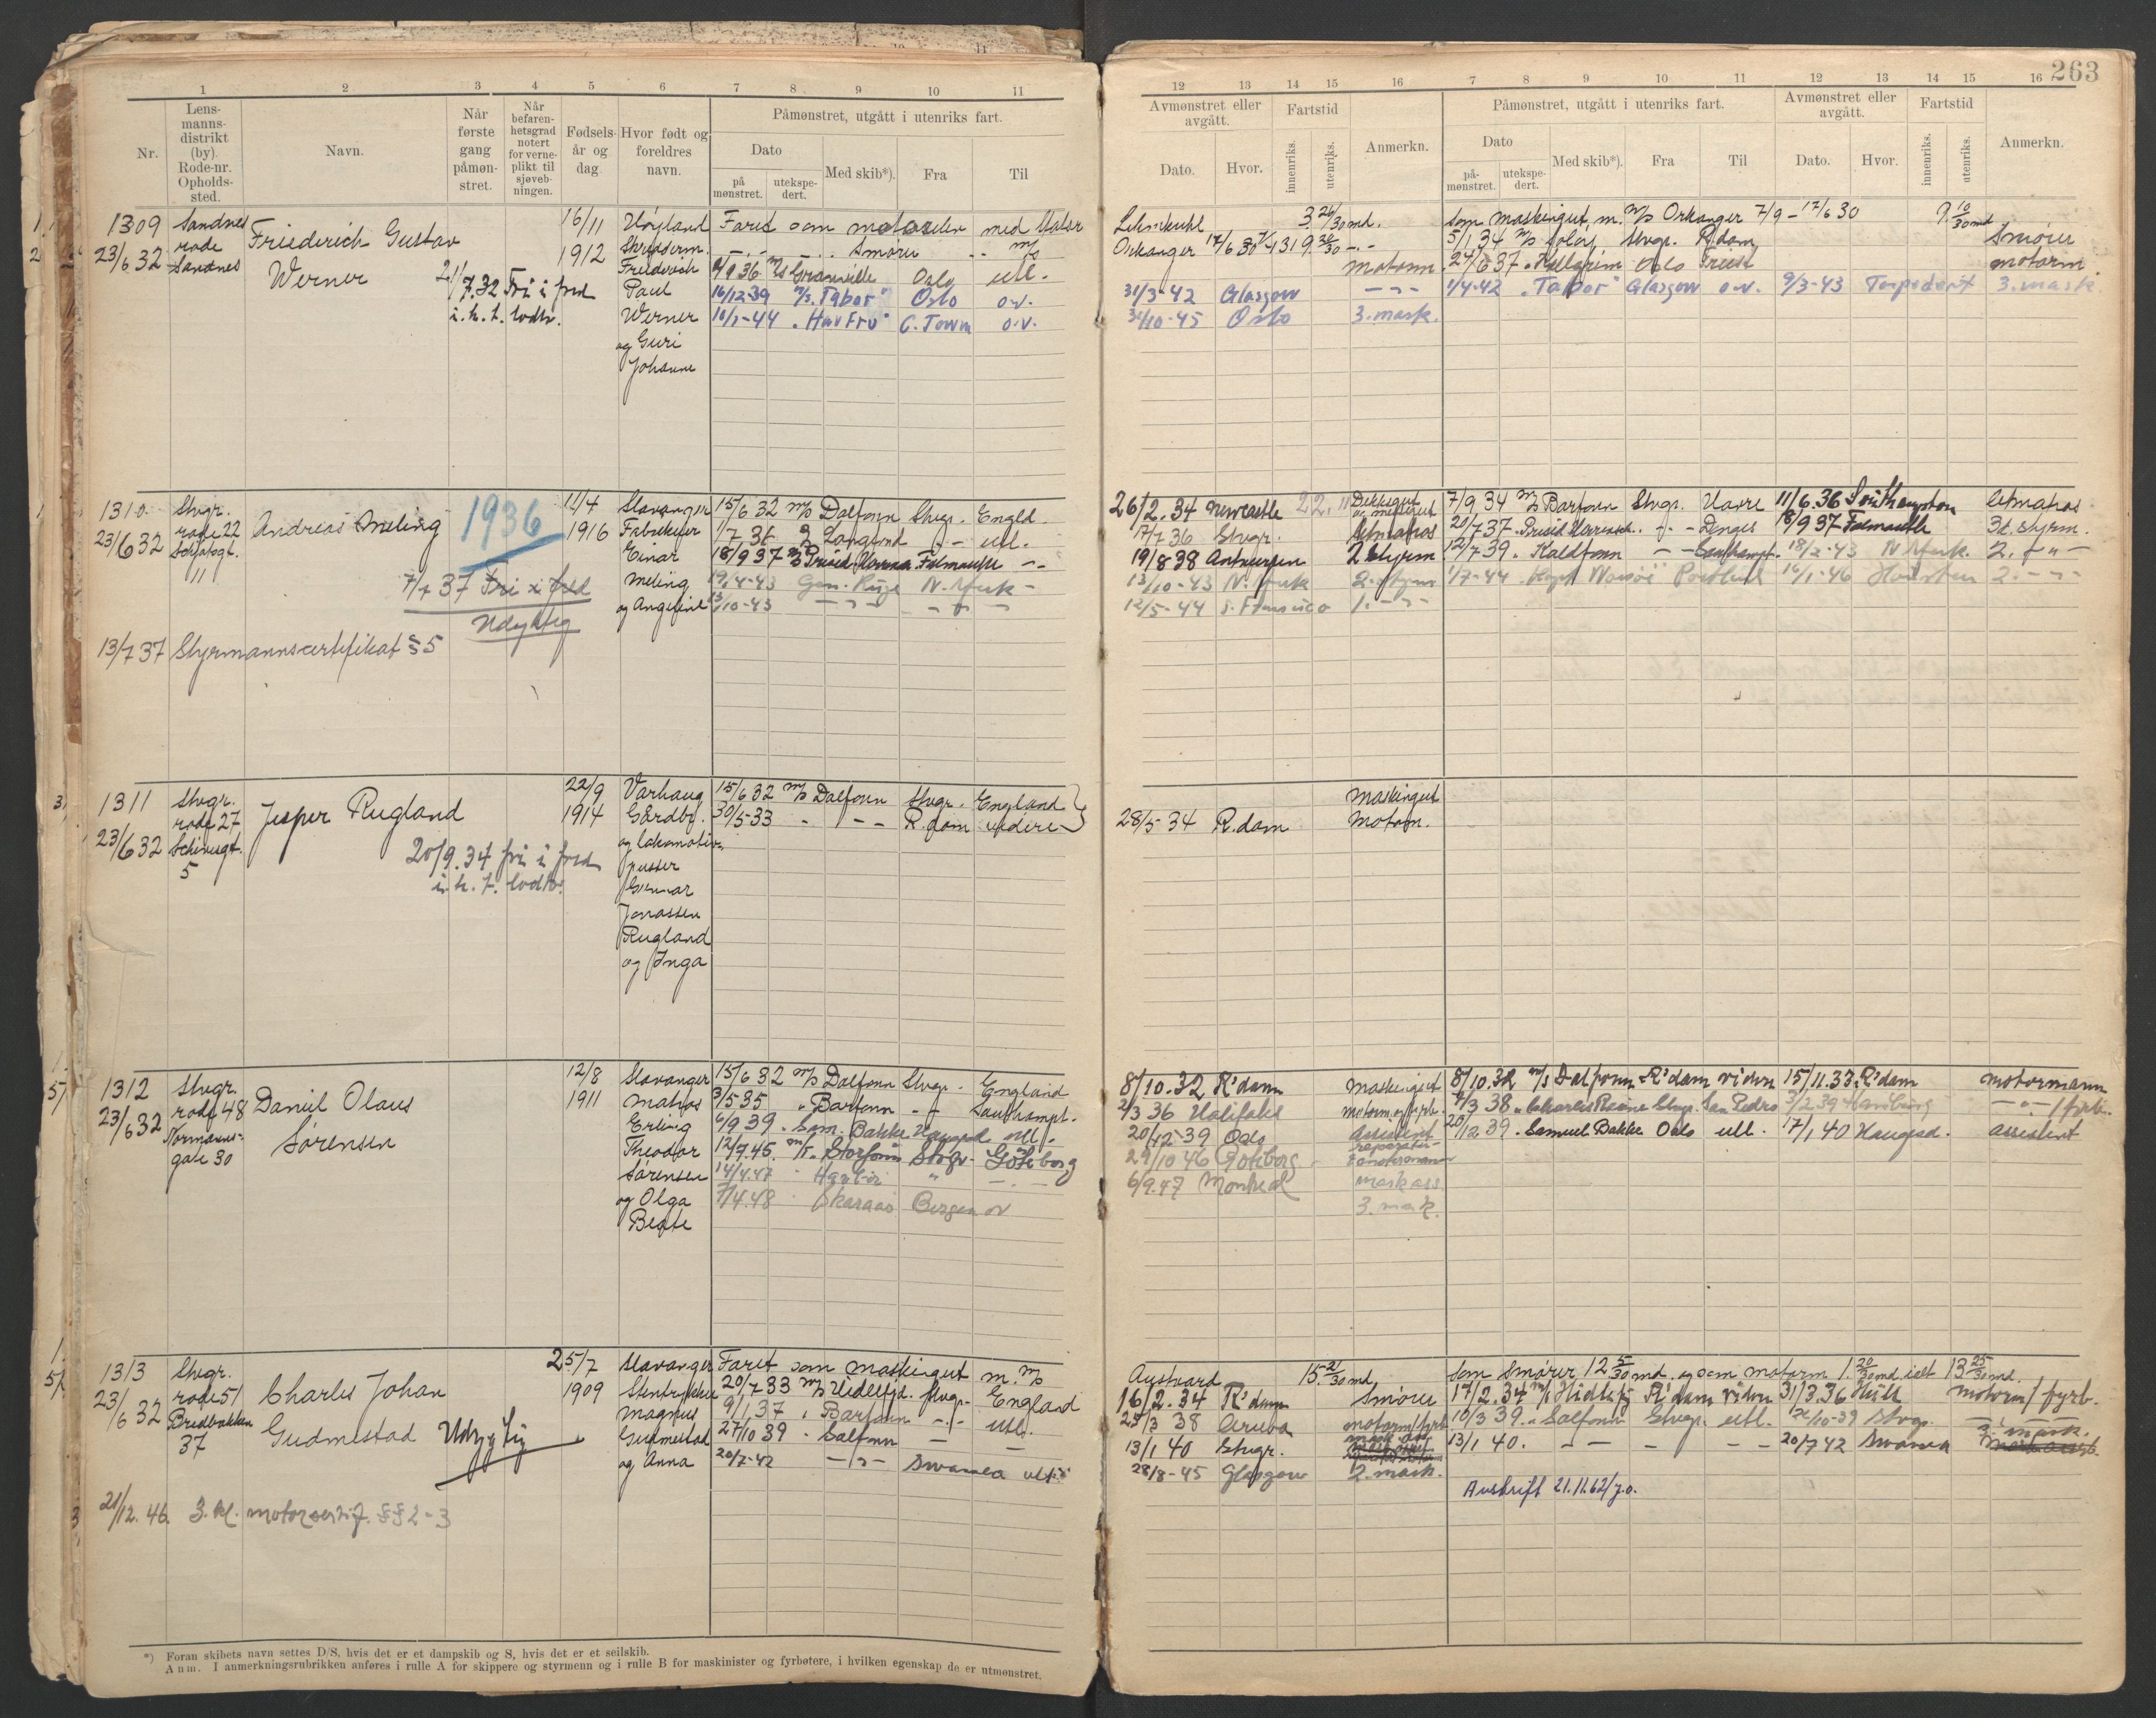 263
1 2 3 4 5 6 7 8 9 10 11
12 13 14 15 16 7 8 9 10 11 12 13 14 15 16
Nr.
Lens-
manns-
distrikt
(by).
Rode-nr.
Opholds-
sted.
Navn.
Når
første
gang
påmøn-
stret.
Når
befaren-
hetsgrad
notert
for verne-
plikt til
sjøveb-
ningen.
Fødsels-
år og
dag
Hvor født og
foreldres
navn.
Påmønstret, utgått i utenriks fart.
Dato
på
mønstret.
utekspe-
dert.
Med skib*).
Fra
Til
Avmønstret eller
avgått.
Dato.
Hvor.
Fartstid
innenriks.
utenriks.
Anmerkn.
Påmønstret, utgått i utenriks fart.
Dato
på-
mønstret.
utekspe-
dert.
Med skib*).
Fra
Til
Avmønstret eller
avgått.
Dato.
Hvor.
Fartstid
innenriks.
utenriks.
Anmerkn.
1309
23/6 32
Sandnes
rode
Sandnes
Friederich Gustav
Werner
21/7.32 Fri i fred
i. h. t. lodtr.
16/11
1912
Høyland
Friederich
Paul
Werner
og Guri
Johanne
Faret som motorelev med
Smører
9/9 36 M/S Granville Oslo utl.
16/12-39 M/S. "Tabor" Oslo o.v.
10/1-44 "Hav Fru" C. Town o.v.
som maskingut m. M/S Orkanger 7/9 - 17/6 30
9 10/30 md
Orkanger 17/6 30
5/1 34 M/S Stvgr. R.dam
Smører
motorm. 24/6 37 Oslo
motorm
31/3-42 Glasgow
1/4-42 "Tabor" Glasgow o.v. 9/3-43 Torpedert 3. mask.
31/10-45 Oslo 3. mask.
1310
23/6 32
Stvgr.
rode 22
11
Andreas Meling
1936
7/7 37 Fri i fred
Udyktig
13/7 37 Styrmannscertifikat § 5
11/4
1916
Stavanger
Einar
Meling
og Angefine
15/6 32 M/S Dalfonn Stvgr. Engld.
1/7 36 Langland utl.
18/9 37 M/S Falmouth
19/4-43 Gen. Ruge N. York -
13/10-43
26/2.34 Newcastle 22. Dekksgut
17/7 36 Stvgr. letmatros
19/8 38 Antwerpen 2 styrm
13/10-43 N. York 2. styrm
12/5-44 S. Francisco 1.
7/9 34 M/S Barfonn Stvgr. Havre 11/6.36 Southampton letmatros
20/7 37. 18/9 37 Falmouth 3t. styrm.
12/7 39. Kaldfonn 18/2-43 N York. 2.
1/7-44 Portland 16/1-46 Houston 2.
1311
23/6 32
Stvgr.
rode 27
5
Jesper Rugland
20/9.34 fri i fred
i. h. t. lodtr.
22/9
1914
Varhaug
Gårdbr.
og lokomotiv-
pusser
Gunnar
Jonassen
Rugland
og Inga
15/6 32 M/S Dalfonn Stvgr. England
30/5-33 R.dam videre
28/5-34 R.dam
maskingut
Motorm.
1312
23/6 32
Stvgr.
rode 48
Normanns-
gate 30
Daniel Olaus
Sørensen
12/8
1911
Stavanger
matros
Erling
Theodor
Sørensen
og Olga
Beate
15/6 32 M/S Dalfonn Stvgr. England
3/5 35 " Barfonn Southampt.
6/9 39. Sam. Bakke Haugesd utl.
12/9.45. M/T. Storfonn Stvgr. Göteborg
14/4.47
7/4.48 Skaraas Bergen ov
8/10.32 R'dam Maskingut
2/3 36 Halifax motorm. og fyrb.
20/12-39 Oslo Assistent
29/10 46 Göteborg
6/9.47 Montreal mask ass
3. mask.
8/10.32 M/S Dalfonn R'dam viders 15/11.33 R'dam motormann
7/3 38. Charles Racine Stvgr. San Pedro 3/2 39 Hamburg fyrb.
20/12 39. Samuel Bakke Oslo utl. 17/1 40 Haugesd. assistent
1313
23/6 32
Stvgr.
rode 51
Bredbakken
37
Charles Johan
Gudmestad Udyktig
21/12.46. 3. kl. motorsertif. §§ 2-3
25/7
1909
Stavanger
Stentrykker
Magnus
Gudmestad
og Anna
Faret som maskingut m. M/S
20/7 33 M/S Hidlefjd. Stvgr. England
9/1 37 " Barfonn utl.
27/10 39 " Salfonn
20/7-42 Swansea utl.
Austvard 15. 21/30 md.
16/2.34 R'dam Smører
25/3 38 Aruba motorm/fyrb
13/1 40 Stvgr. mask ass
28/8-45 Glasgow 2. mask.
som Smører 12 5/30 md. og som motorm 1. 20/30 md. ialt 13 25/30 md.
17/2.34 M/S Hidlefj R'dam viders 31/3.36 Hull motorm/fyrb.
10/3 39. " Salfonn Stvgr. utl. 26/10-39 Stvgr.
13/1 40. 20/7 42 Swansea 3. mask.
Avskrift 21.11.62/J.O.
*) Foran skibets navn settes D/S, hvis det er et dampskib og S, hvis det er et seilskib.
Anm. I anmerkningsrubrikken anføres i rulle A for skippere og styrmenn og i rulle B for maskinister og fyrbøtere, i hvilken egenskap de er utmønstret.